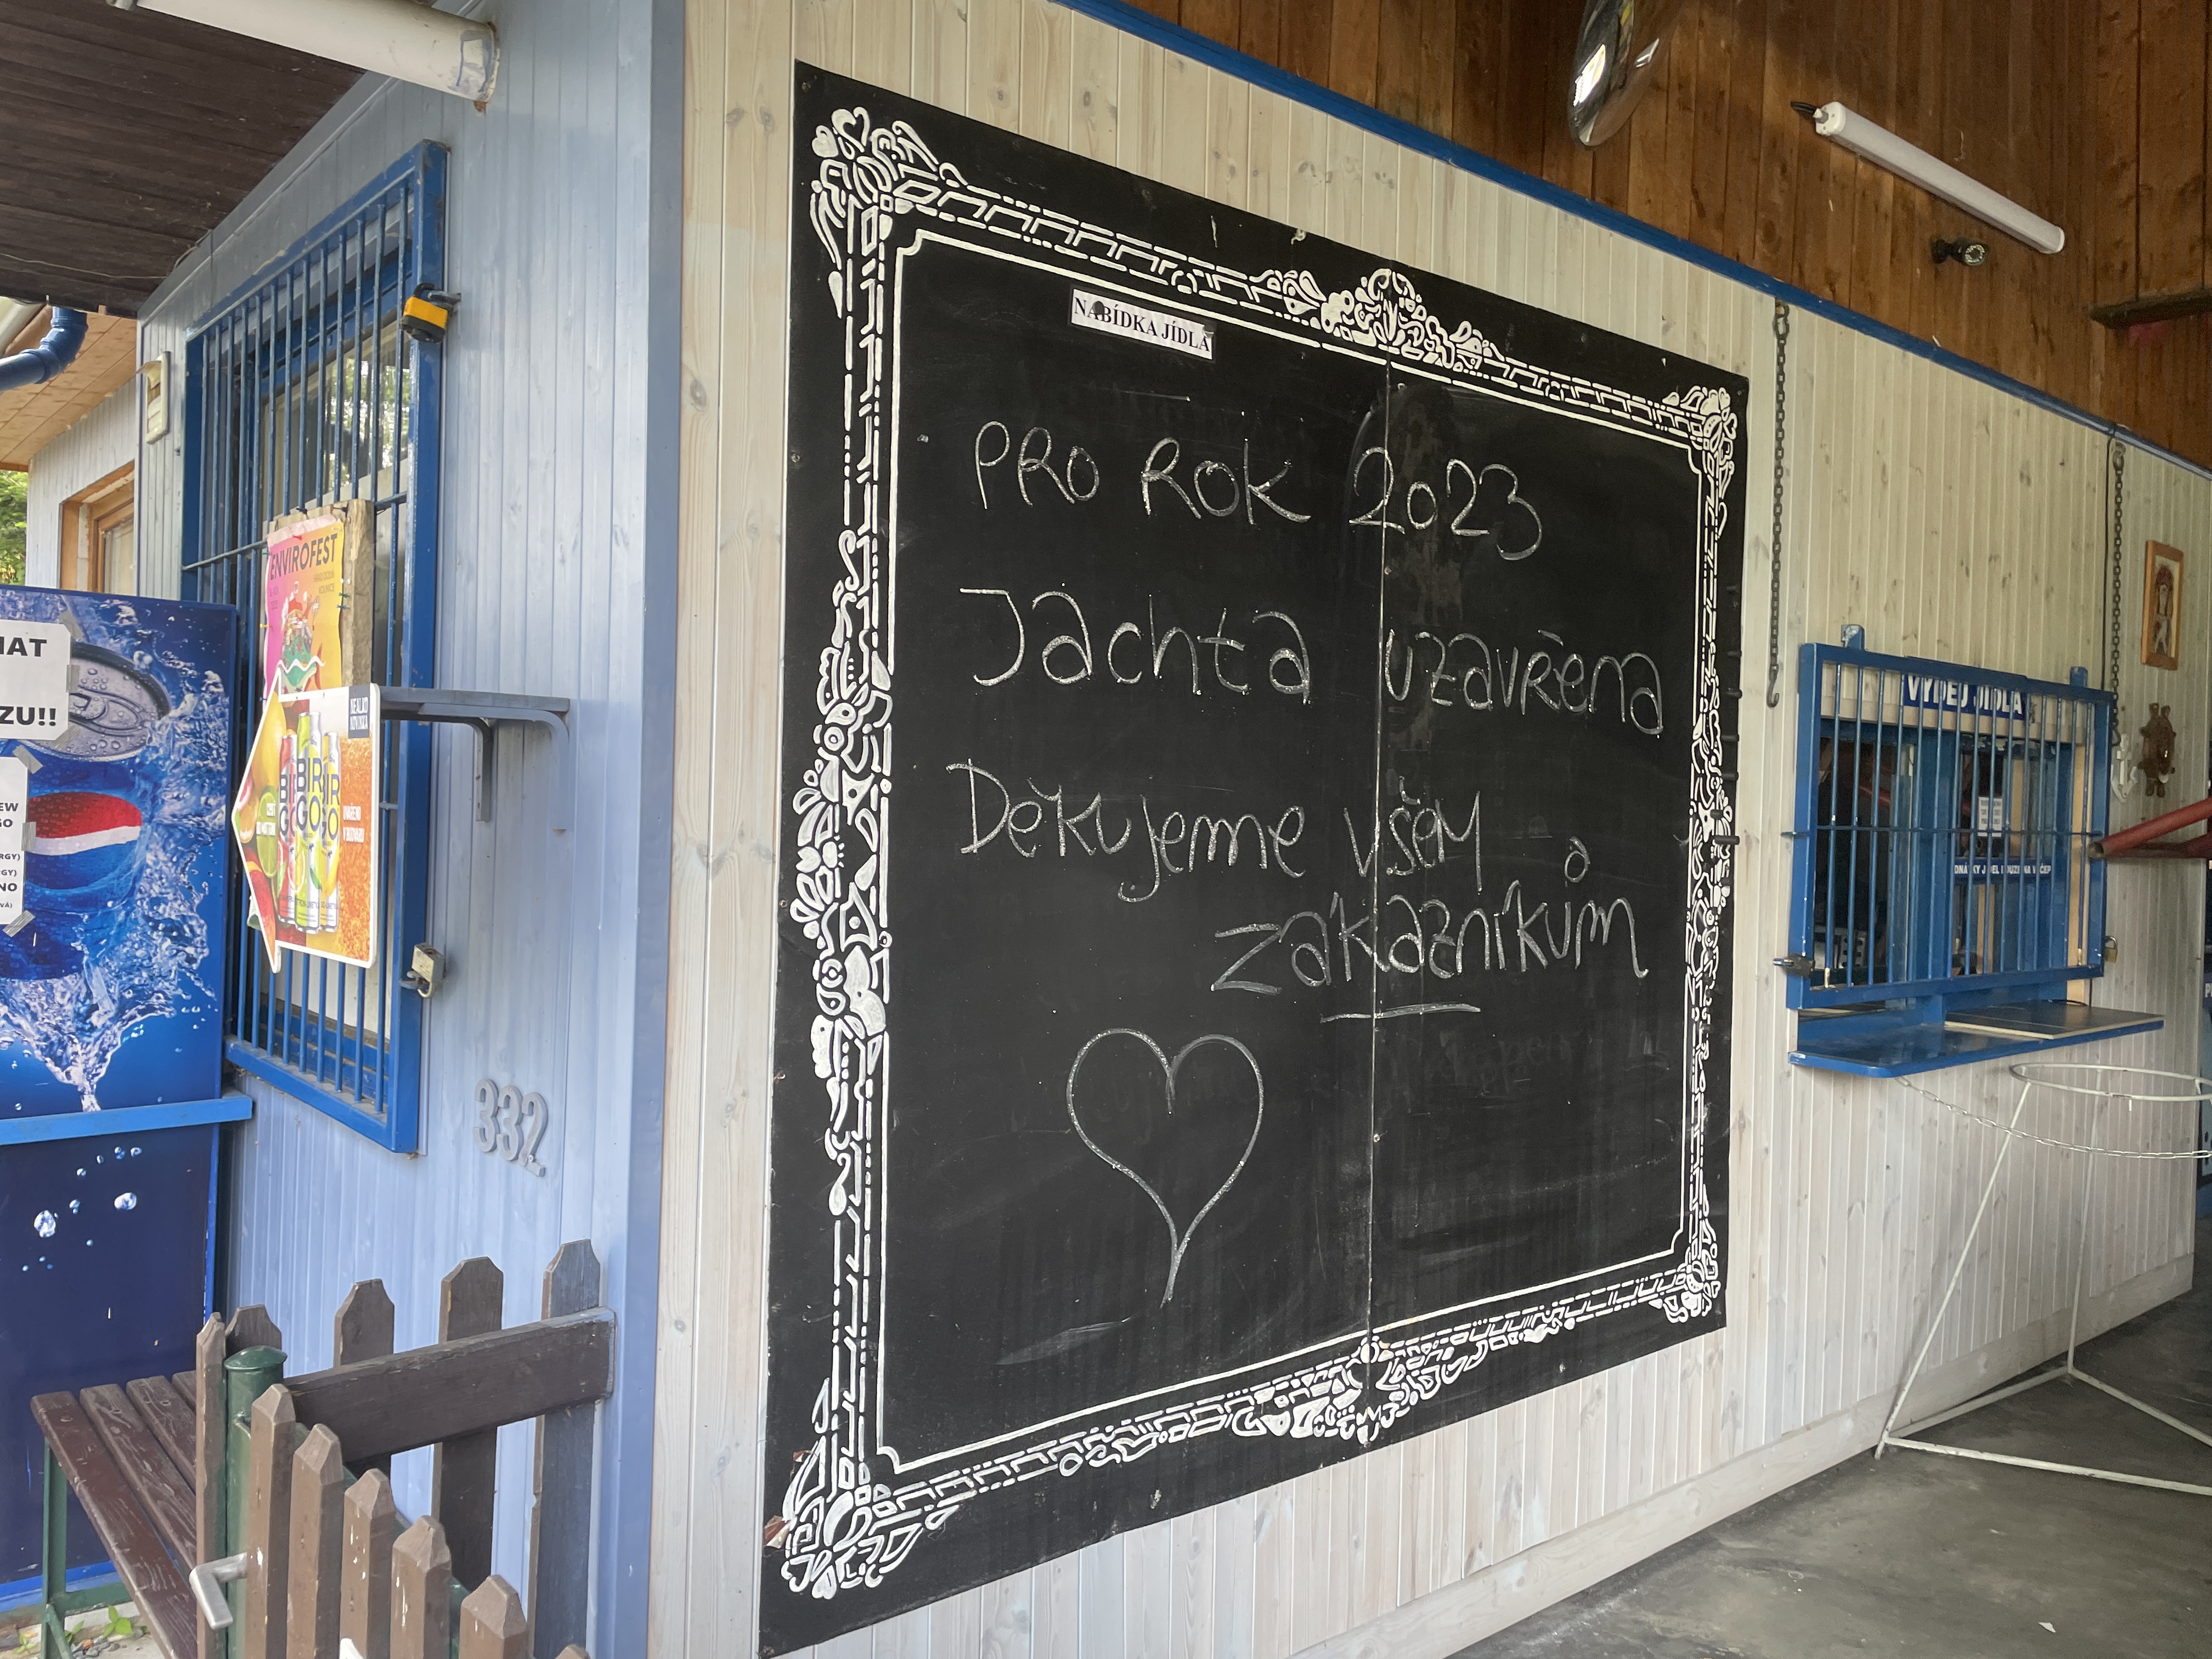 NABÍDKA JÍDLA
PRO ROK 2023
Jachta uzavřena
Děkujeme všem
zákazníkům
ENVIROFEST
BIRGO
332
VÝDEJ JÍDLA
ZU!!